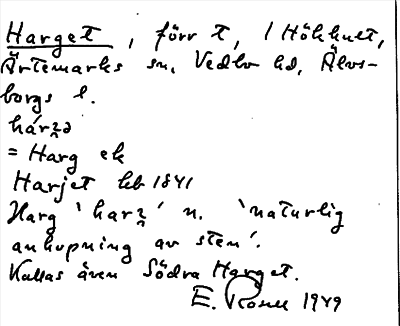 Harget, förr t, i Hökhult,
Ärtemarks sn, Vedbo hd, Älvs-
borgs l.
= Harg ek
Harjet hb 1841
Harg 'harʒ' n. 'naturlig
anhopning av sten'.
Kallas även Södra Harget.
E. Rosell 1949